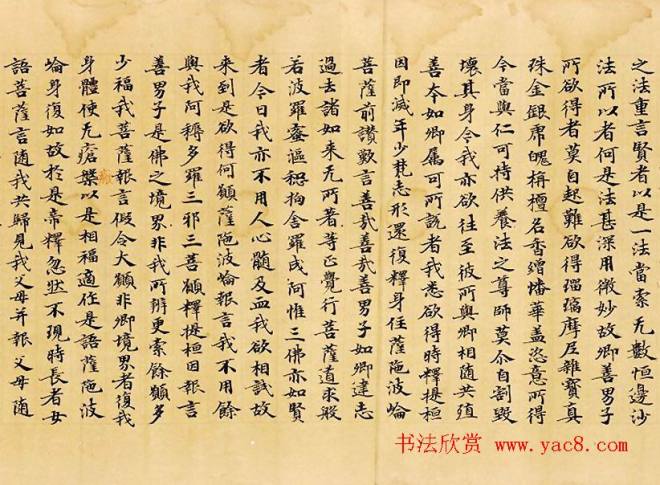 之法重言賢者以是一法當索无數恒邊沙
法所以者何是法甚深用微妙故卿善男子
所欲得者莫自起難欲得瑠璃摩尼雜寶真
珠金銀席魄栴檀名香繒幡華盖恣意所得
今當與仁可持供養法之尊師莫尒自割毀
壞其身今我亦欲往至彼所與卿相随共殖
善本如卿屬可所説者我悉欲得時釋提桓
因即滅年少梵志形還復釋身住薩陁波崘
菩薩前讃歎言善㢤善㢤善男子如卿建志
過去諸如来无所著等正覺行菩薩道求般
若波羅蜜漚惒拘舍羅成阿惟三佛亦如賢
者今日我亦不用人心髓及血我欲相試故
来到是欲得何願薩陁波崘報言我不用餘
與我阿耨多羅三耶三菩願釋提桓因報言
善男子是佛之境界非我所辨更索餘願多
少福我菩薩報言假令大願非卿境界者復我
身體使无瘡㿀以是相福適作是語薩陁波
崘身復如故於是帝釋忽然不現時長者女
語菩薩言随我共歸見我父母并報父母随
书法欣赏 www.yac8.com